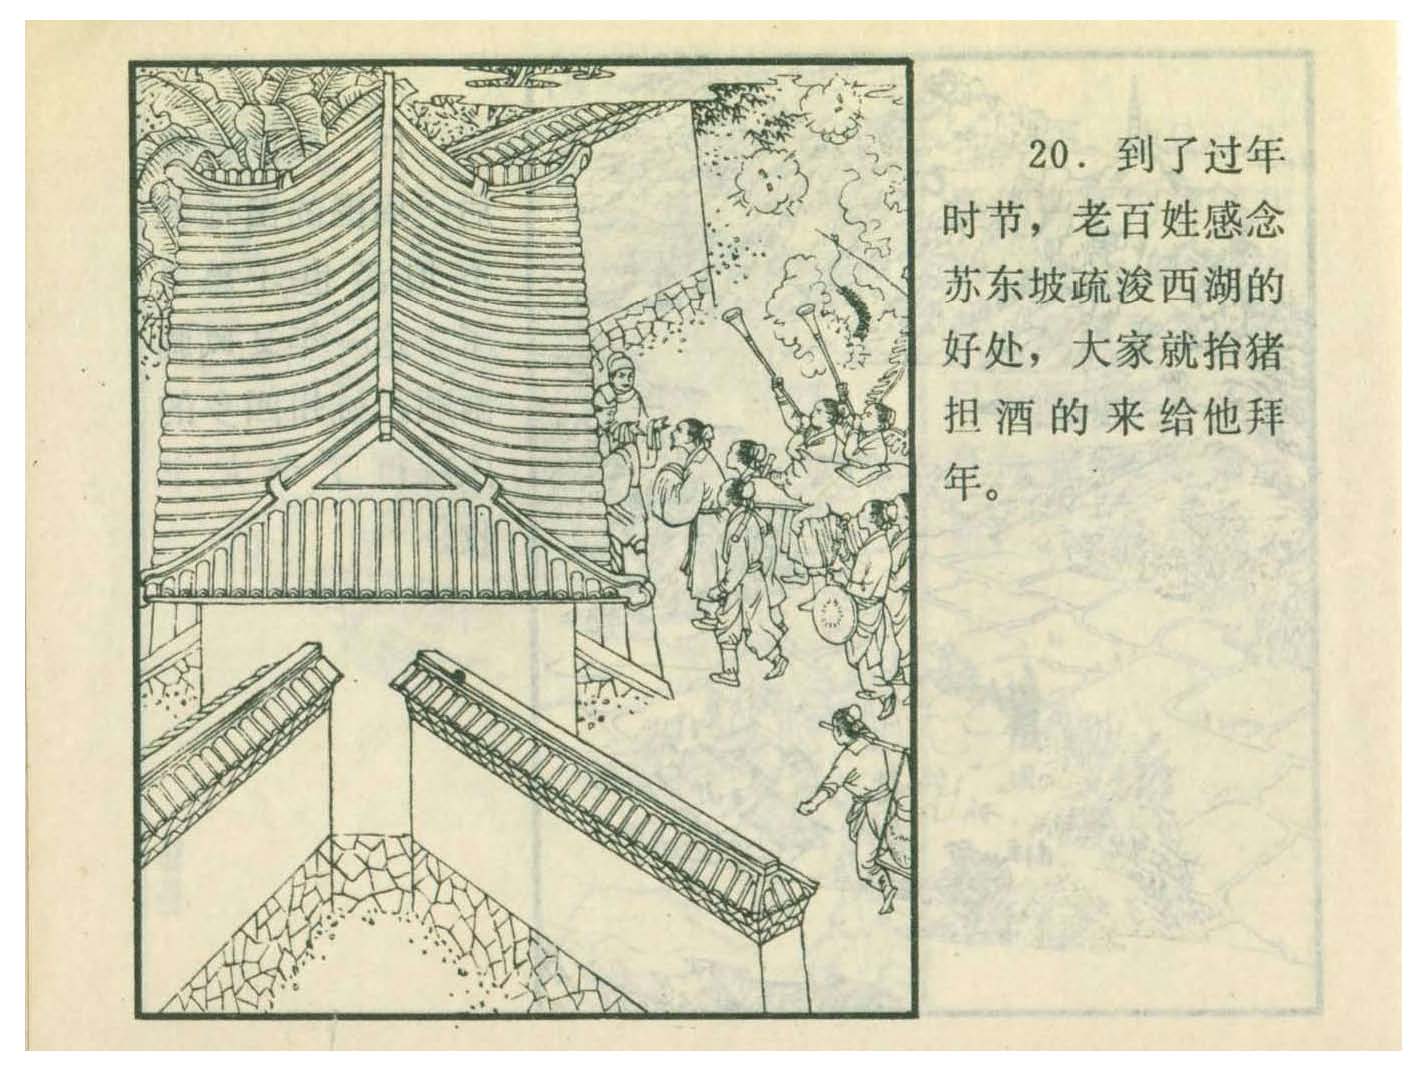 20. 到了过年
时节，老百姓感念
苏东坡疏浚西湖的
好处，大家就抬猪
担酒的来给他拜
年。